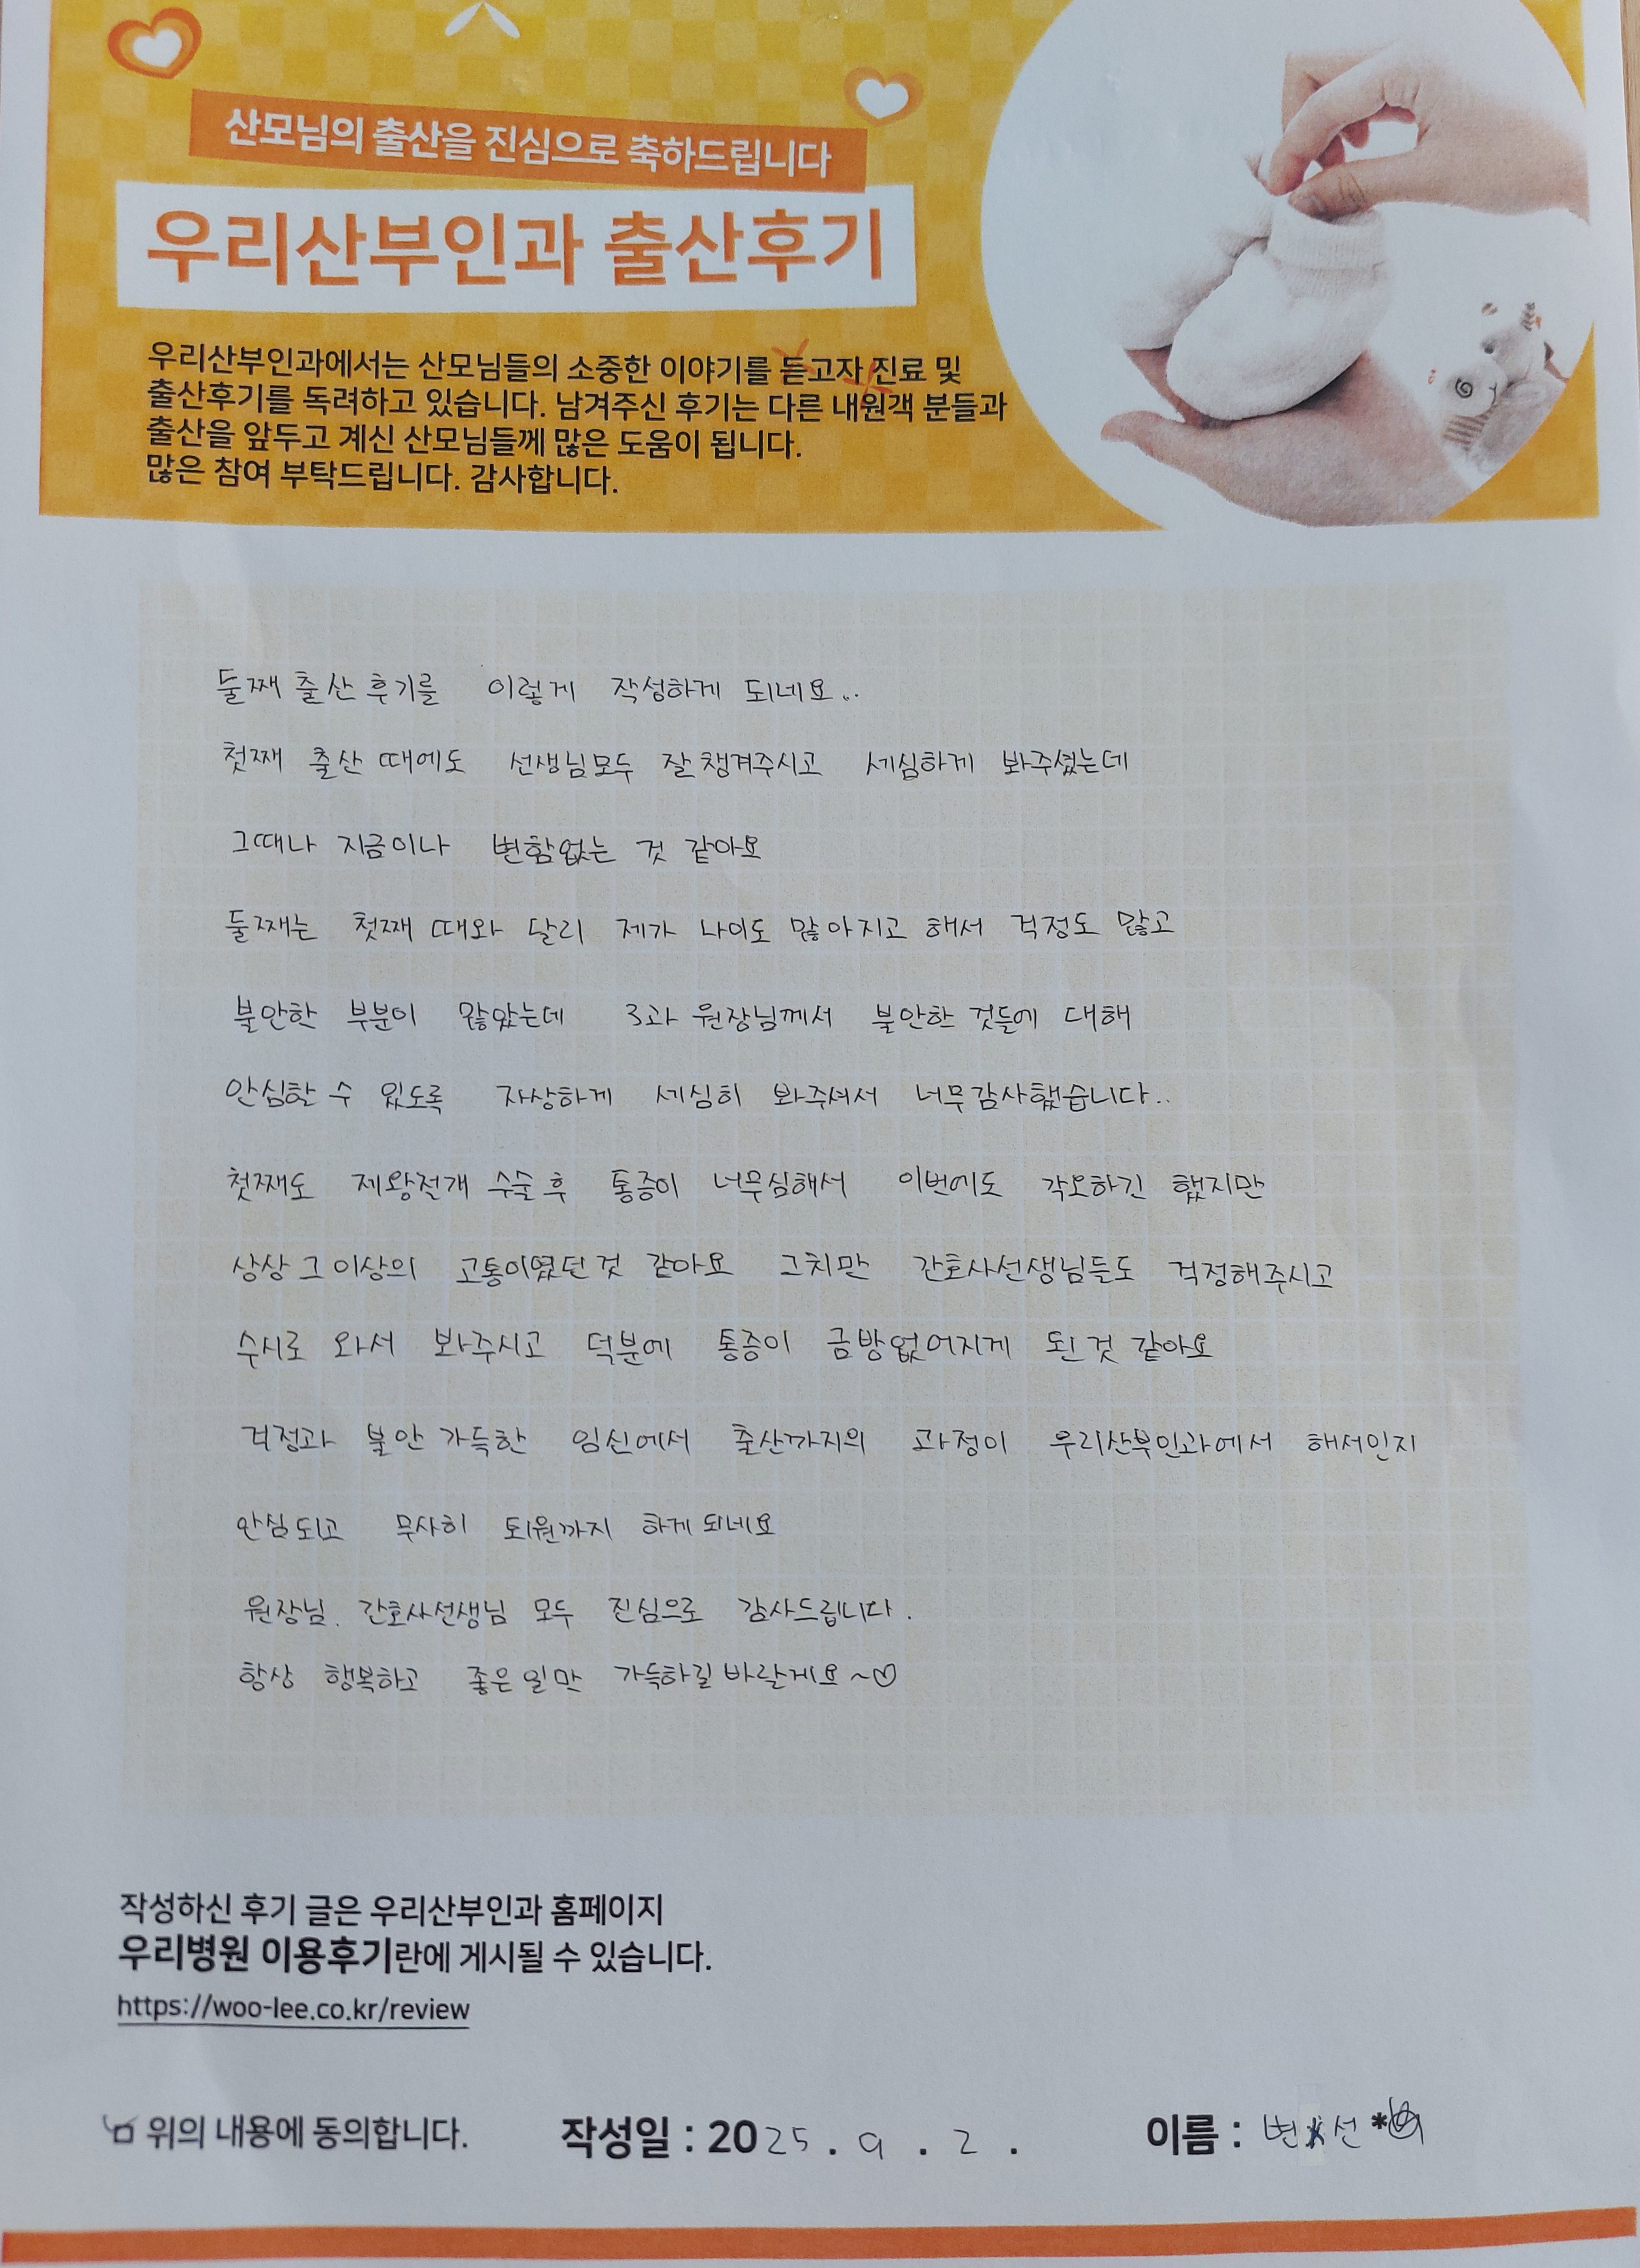 산모님의 출산을 진심으로 축하드립니다
우리산부인과 출산후기
우리산부인과에서는 산모님들의 소중한 이야기를 듣고자 진료 및
출산후기를 독려하고 있습니다. 남겨주신 후기는 다른 내원객 분들과
출산을 앞두고 계신 산모님들께 많은 도움이 됩니다.
많은 참여 부탁드립니다. 감사합니다.
둘째 출산 후기를 이렇게 작성하게 되네요..
첫째 출산 때에도 선생님모두 잘 챙겨주시고 세심하게 봐주셨는데
그때나 지금이나 변함없는 것 같아요
둘째는 첫째 때와 달리 제가 나이도 많아지고 해서 걱정도 많고
불안한 부분이 많았는데 3과 원장님께서 불안한 것들에 대해
안심할 수 있도록 자상하게 세심히 봐주셔서 너무감사했습니다..
첫째도 제왕절개 수술 후 통증이 너무심해서 이번에도 각오하긴 했지만
상상 그 이상의 고통이였던 것 같아요 그치만 간호사선생님들도 걱정해주시고
수시로 와서 봐주시고 덕분에 통증이 금방없어지게 된 것 같아요
걱정과 불안 가득한 임신에서 출산까지의 과정이 우리산부인과에서 해서인지
안심되고 무사히 퇴원까지 하게 되네요
원장님. 간호사선생님 모두 진심으로 감사드립니다.
항상 행복하고 좋은 일만 가득하길 바랄게요~♡
작성하신 후기 글은 우리산부인과 홈페이지
우리병원 이용후기란에 게시될 수 있습니다.
https://woo-lee.co.kr/review
위의 내용에 동의합니다. 작성일 : 2025 . 9 . 2 . 이름 : 변 선 *